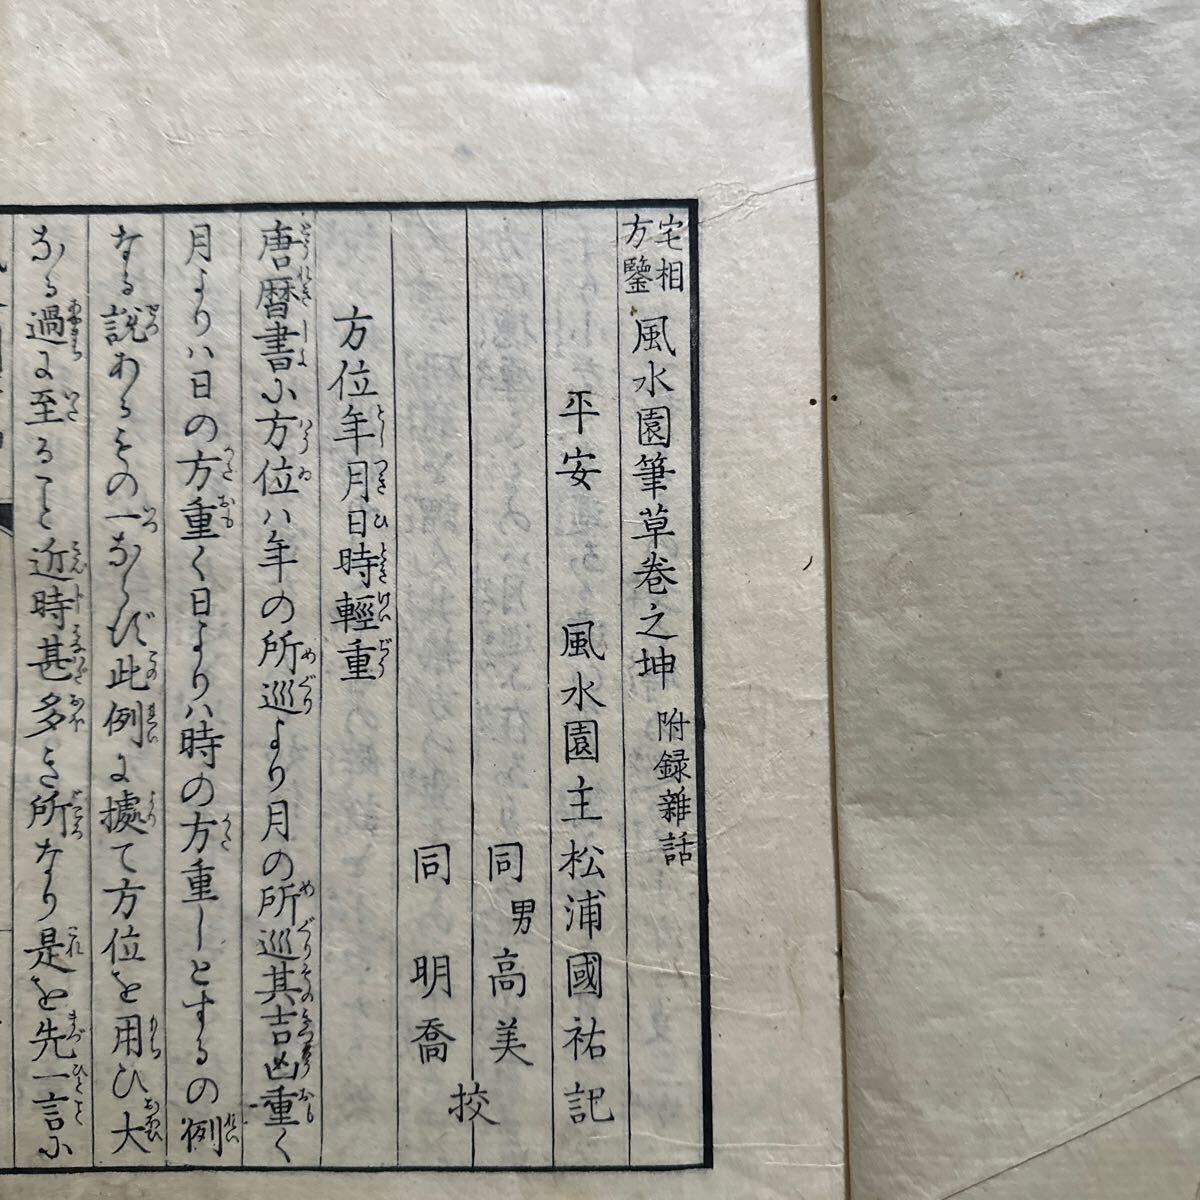 宅相方鑒 風水園筆草卷之坤 附録雜話
平安 風水園主松浦國祐記
同男 高美
同 明喬 挍
方位年月日時輕重
唐暦書ふ方位ハ年の所巡より月の所巡其吉凶重く
月よりハ日の方重く日よりハ時の方重しとするの例
なる説あるその一ならず此例に據て方位を用ひ大
なる過に至ること近時甚多き所なり是を先一言ふ